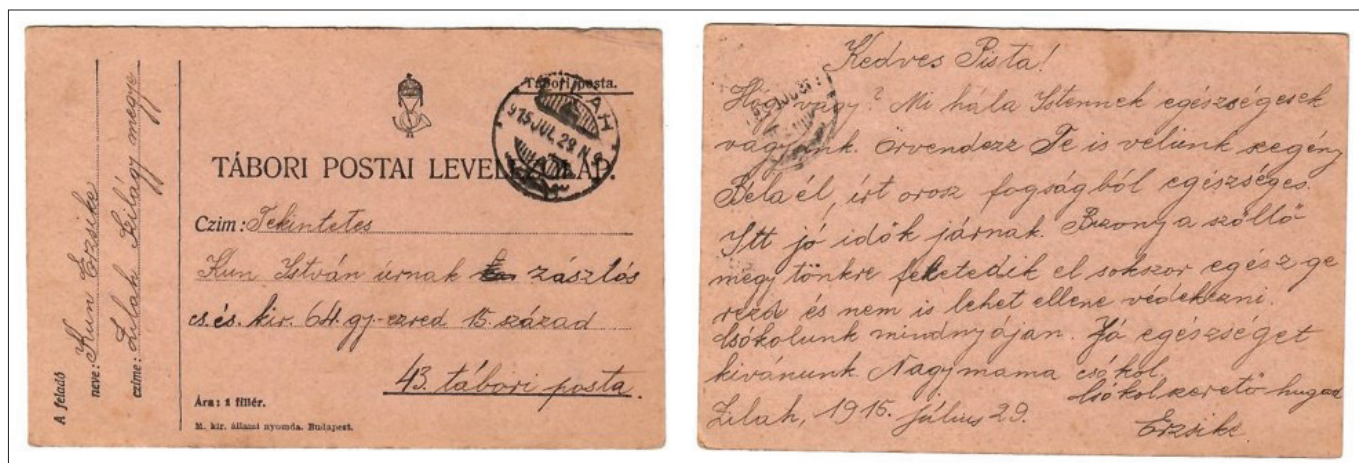 A feladó
neve: Kun Erzsike
czime: Zilah Szilágy megye
Tábori posta.
ZILAH
915 JUL. 29. N.8
TÁBORI POSTAI LEVELEZŐLAP.
Czim: Tekintetes
Kun István úrnak zászlós
cs. és. kir. 64. gy. ezred 15. század
43. tábori posta.
Ára: 1 fillér.
M. kir. állami nyomda. Budapest.
Kedves Pista!
Hogy vagy? Mi hála Istennek egészségesek
vagyunk. Örvendezz Te is velünk szegény
Béla él, írt orosz fogságból egészséges.
Itt jó idők járnak. Bizony a szöllő
megy tönkre feketedik el sokszor egész ge
rezd és nem is lehet ellene védekezni.
Csókolunk mindnyájan. Jó egészséget
kivánunk. Nagymama csókol.
Csókol szerető hugod
Zilah, 1915. július 29.
Erzsike